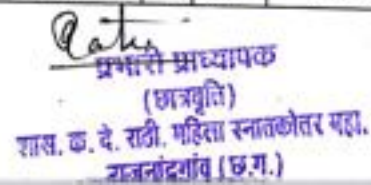 प्रभारी प्राध्यापक
(छात्रवृति)
शास. क. दे. राठी. महिला स्नातकोतर महा.
राजनांदगांव (छ.ग.)